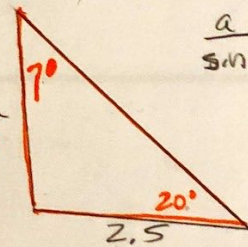 a
sin
7°
20°
2.5